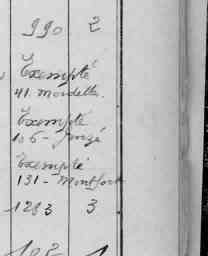 990 2
Exempté
41. Mordelles
Exempté
106 - Janzé
Exempté
131 - Montfort
1283 3